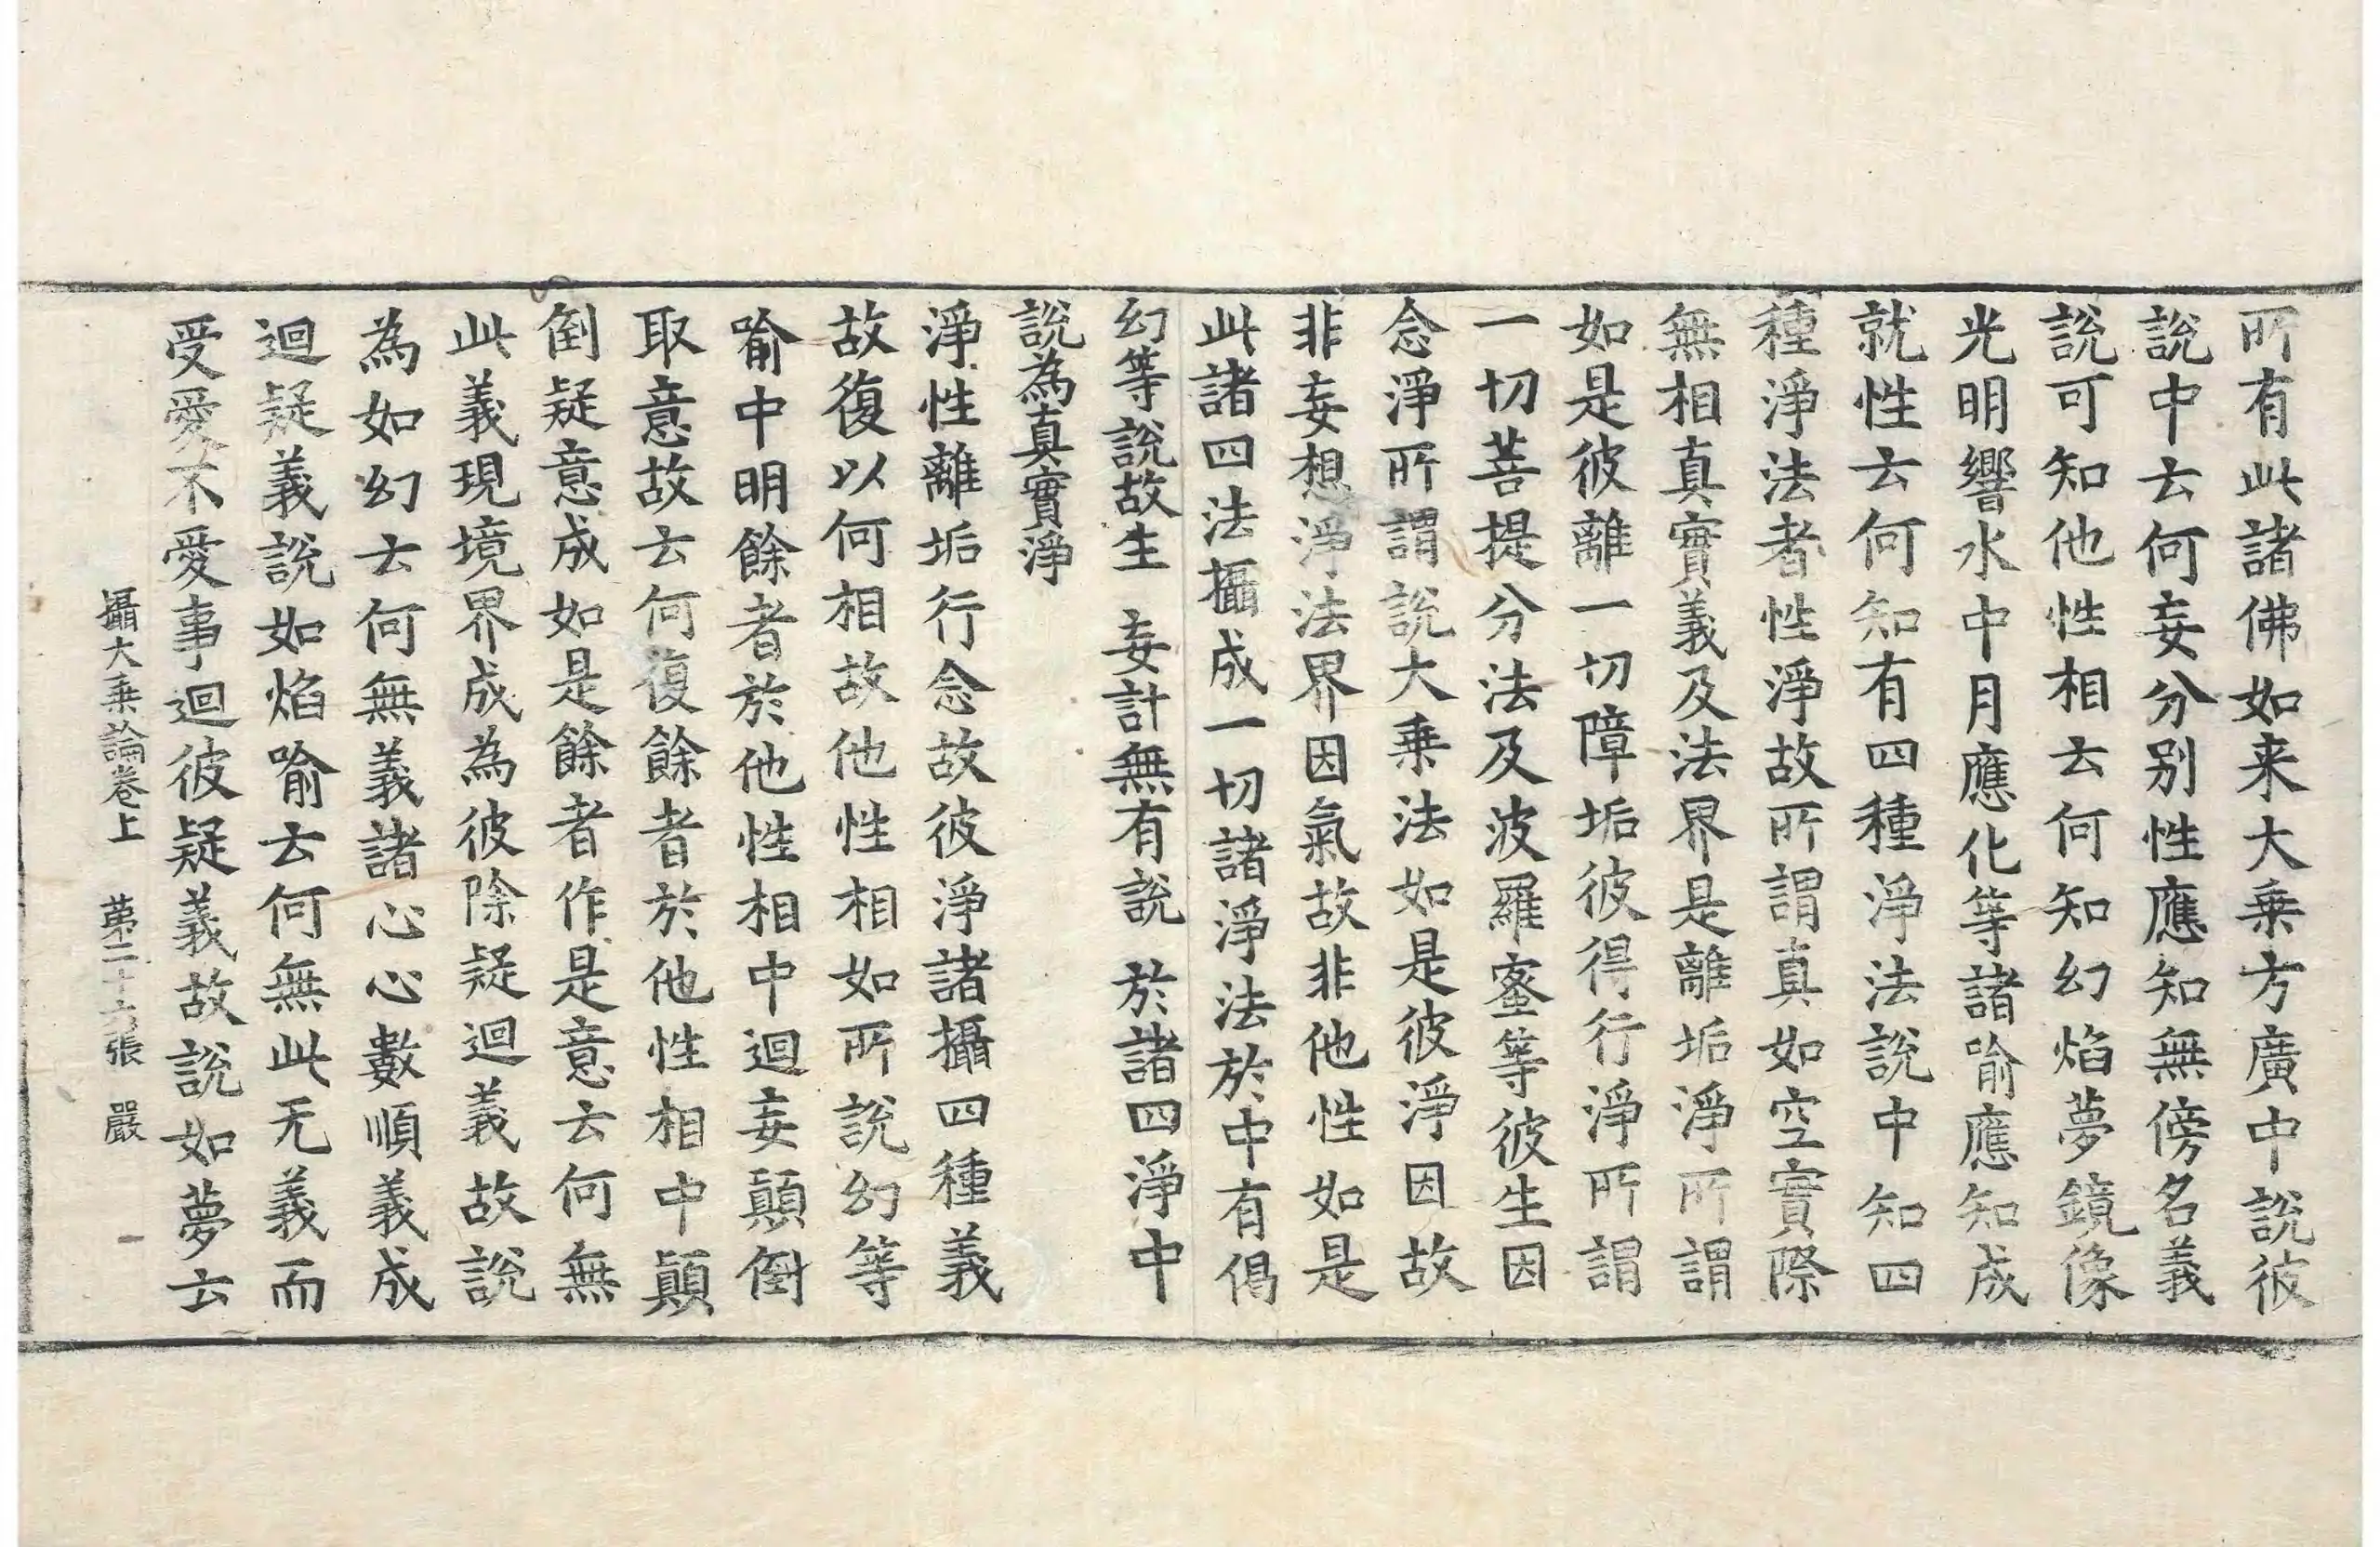 所有此諸佛如来大乗方廣中說彼
說中去何妄分别性應知無傍名義
說可知他性相去何知幻焰夢鏡像
光明響水中月應化等諸喻應知成
就性去何知有四種淨法說中知四
種淨法者性淨故所謂真如空實際
無相真實義及法界是離垢淨所謂
如是彼離一切障垢彼得行淨所謂
一切菩提分法及波羅蜜等彼生因
念淨所謂說大乗法如是彼淨因故
非妄想淨法界因氣故非他性如是
此諸四法攝成一切諸淨法於中有偈
幻等說故生　妄計無有說　於諸四淨中
說為真實淨
淨性離垢行念故彼淨諸攝四種義
故復以何相故他性相如所說幻等
喻中明餘者於他性相中迴妄顛倒
取意故去何復餘者於他性相中顛
倒疑意成如是餘者作是意去何無
此義現境界成為彼除疑迴義故說
為如幻去何無義諸心心數順義成
迴疑義說如焰喻去何無此无義而
受愛不愛事迴彼疑義故說如夢去
攝大乗論卷上　第二十六張　嚴